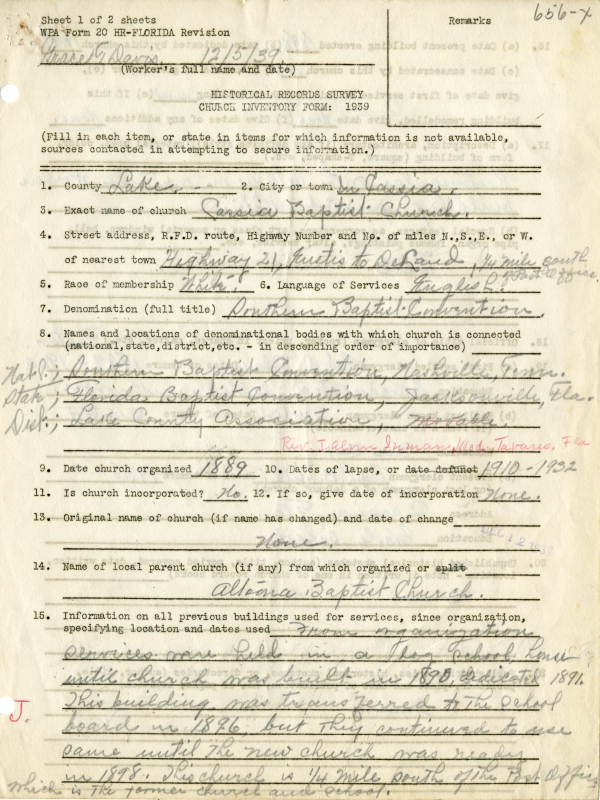 Sheet 1 of 2 sheets
Remarks
656-x
WPA Form 20 HR-FLORIDA Revision
Grace G Davis, 12/5/39.
(Worker's full name and date)
HISTORICAL RECORDS SURVEY
CHURCH INVENTORY FORM: 1939
(Fill in each item, or state in items for which information is not available,
sources contacted in attempting to secure information.)
1. County Lake. 2. City or town in Cassia.
3. Exact name of church Cassia Baptist Church.
4. Street address, R.F.D. route, Highway Number and No. of miles N.,S.,E., or W.
of nearest town Highway 21, Eustis to DeLand, ¼ mile south
of Post Office.
5. Race of membership White. 6. Language of Services English.
7. Denomination (full title) Southern Baptist Convention.
8. Names and locations of denominational bodies with which church is connected
(national,state,district,etc. - in descending order of importance)
Nat'l; Southern Baptist Convention, Nashville, Tenn.
State; Florida Baptist Convention, Jacksonville, Fla.
Dist.; Lake County Association,
Rev. J. Alvin Inman, Mod., Tavares, Fla
9. Date church organized 1889 10. Dates of lapse, or date defunct 1910-1932
11. Is church incorporated? No. 12. If so, give date of incorporation None.
13. Original name of church (if name has changed) and date of change
None.
14. Name of local parent church (if any) from which organized or split
Altoona Baptist Church.
15. Information on all previous buildings used for services, since organization,
specifying location and dates used From organization
services were held in a log School House
until church was built in 1890, dedicated 1891.
This building was transferred to the school
J.
board in 1896, but they continued to use
same until the new church was ready
in 1898. This church is ¼ mile south of the Post Office
which is the former church and school.